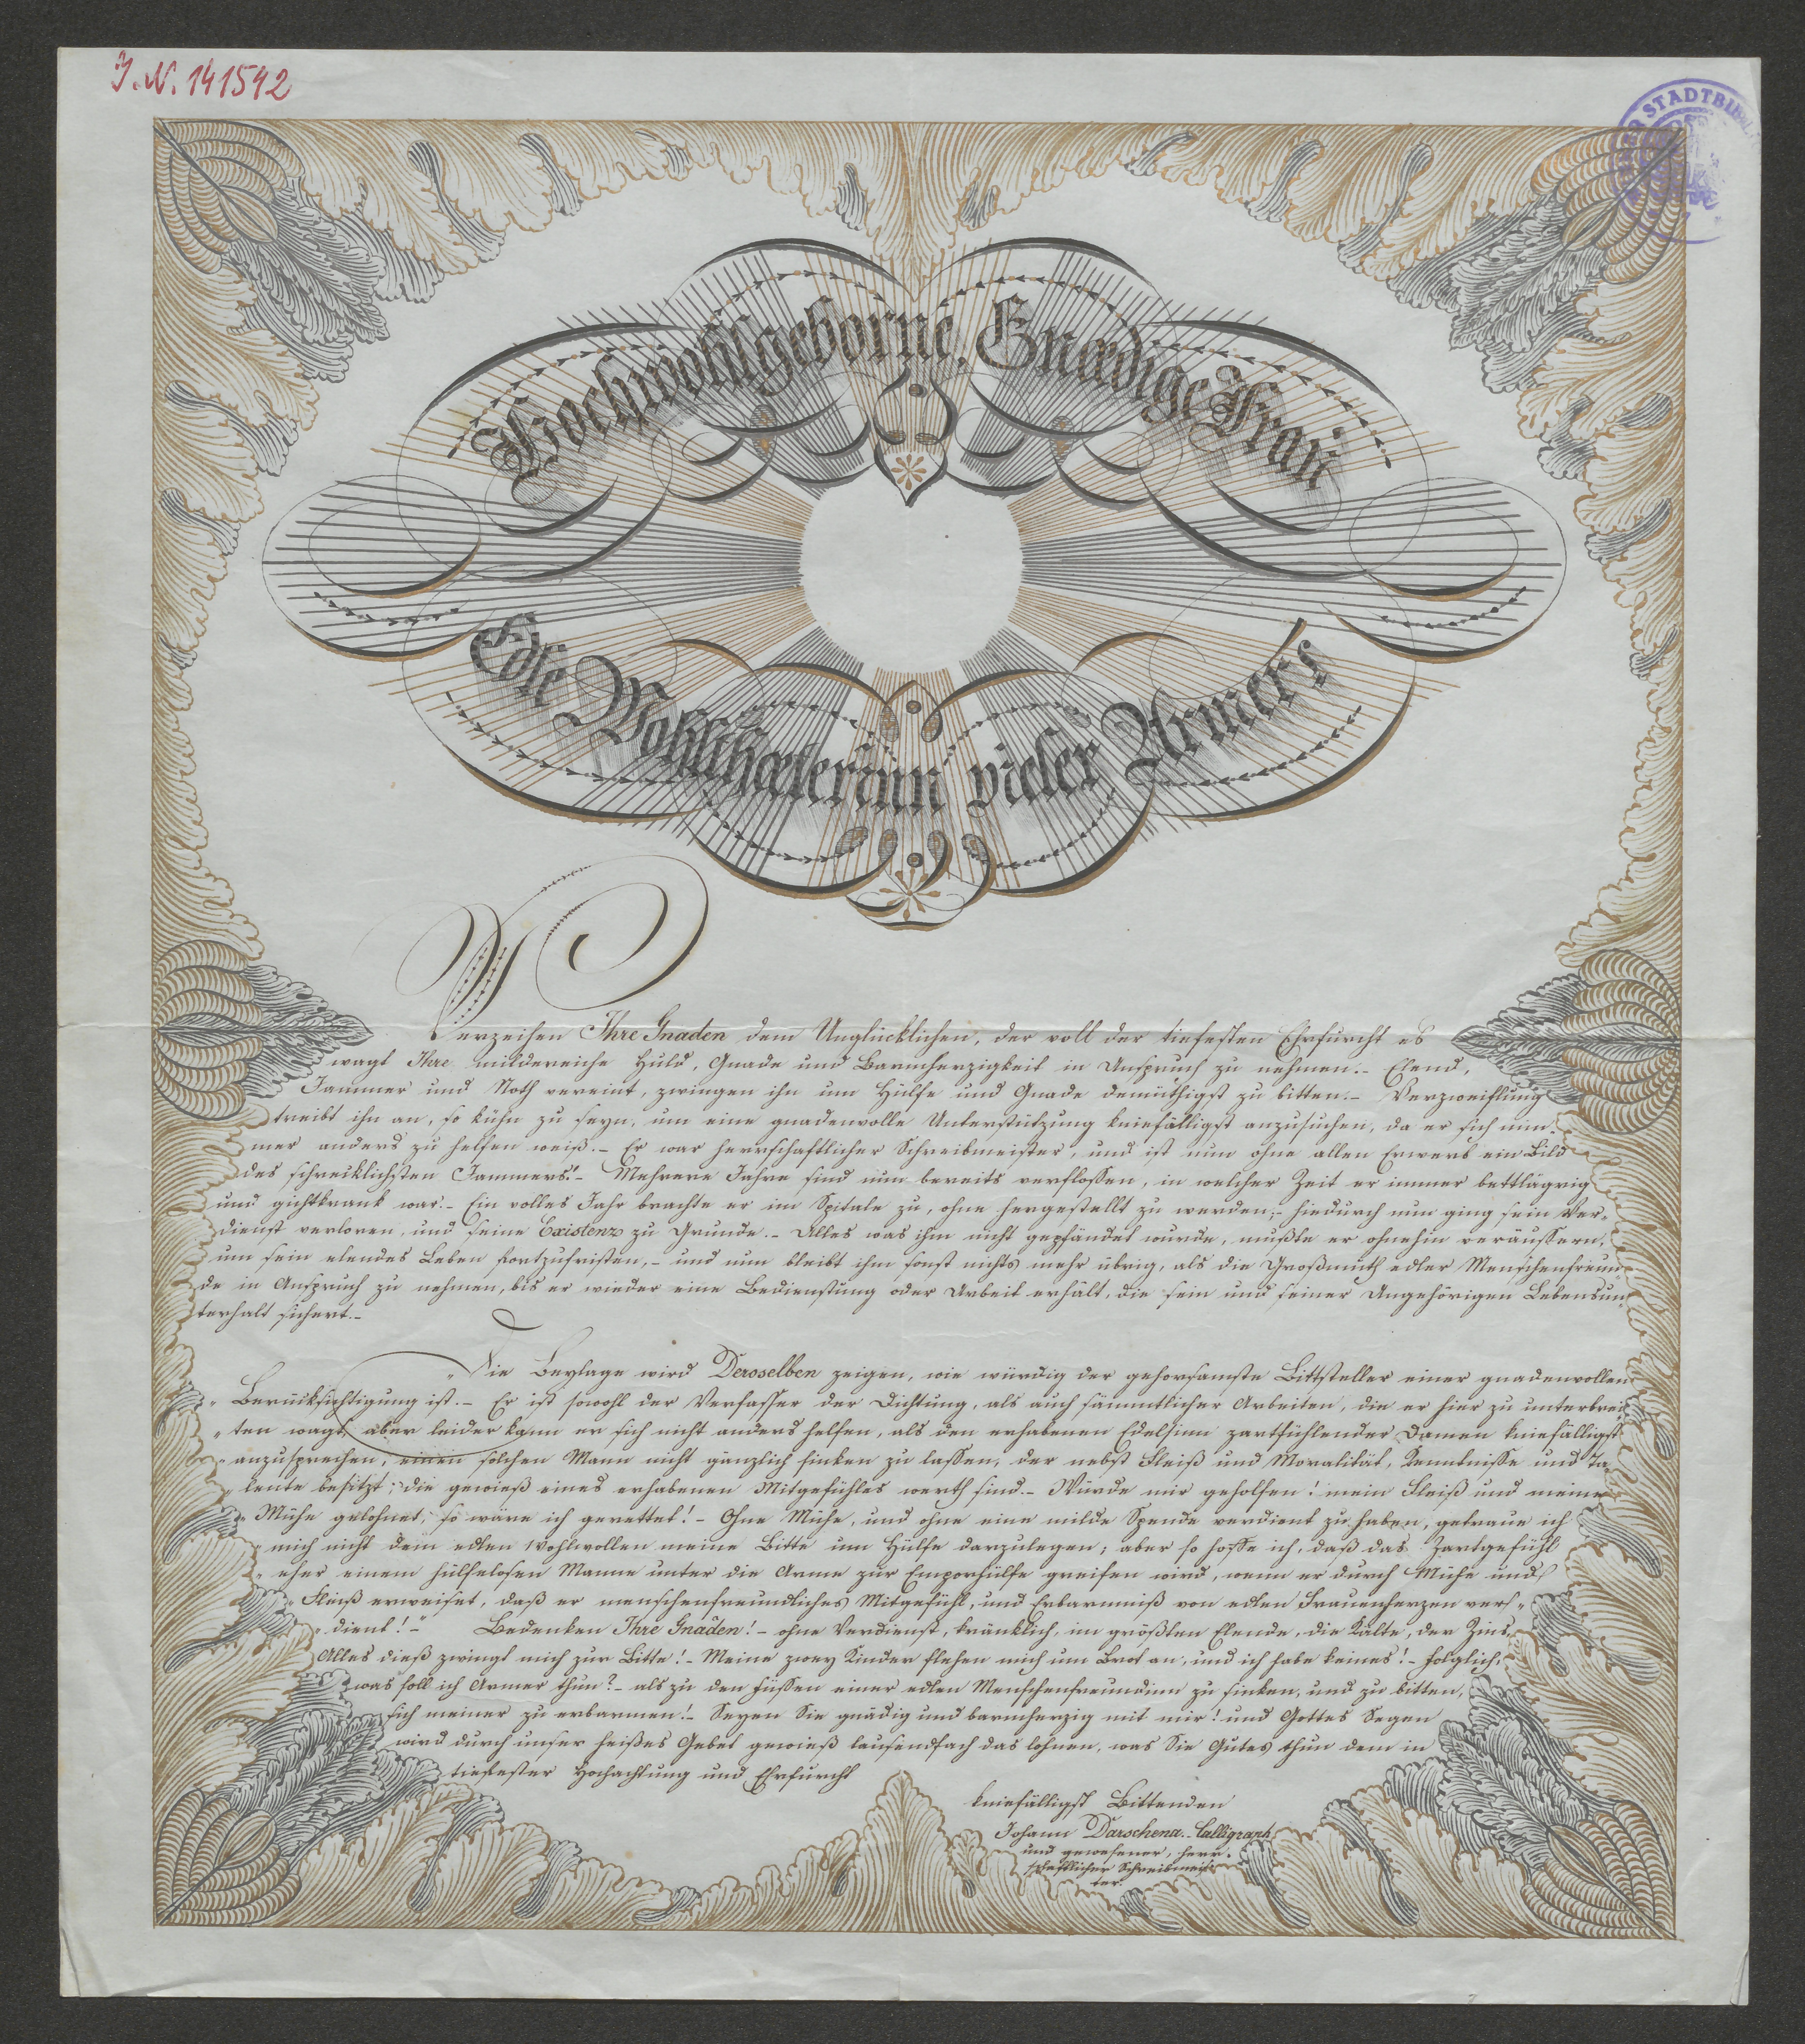 J.N. 141542
STADTBIBL
Hochwohlgeborne, Gnædige Frau
Edle Wohlthæterinn vieler Armen!
Verzeihen Ihre Gnaden dem Unglücklichen, der voll der tiefesten Ehrfurcht es
wagt Ihre mildereiche Huld, Gnade und Barmherzigkeit in Anspruch zu nehmen.– Elend,
Jammer und Noth vereint, zwingen ihn um Hülfe und Gnade demüthigst zu bitten.– Verzweiflung
treibt ihn an, so kühn zu seyn, um eine gnadenvolle Unterstützung kniefälligst anzusuchen, da er sich nim-
mer anders zu helfen weiß.– Er war herrschaftlicher Schreibmeister, und ist nun ohne allen Erwerb ein Bild
des schrecklichsten Jammers!– Mehrere Jahre sind nun bereits verflossen, in welcher Zeit er immer bettlägrig
und gichtkrank war.– Ein volles Jahr brachte er im Spitale zu, ohne hergestellt zu werden;– hiedurch nun ging sein Ver-
dienst verloren, und seine Existenz zu Grunde.– Alles was ihm nicht gepfändet wurde, mußte er ohnehin veräussern,
um sein elendes Leben fortzufristen,– und nun bleibt ihm sonst nichts mehr übrig, als die Großmuth edler Menschenfreun-
de in Anspruch zu nehmen, bis er wieder eine Bedienstung oder Arbeit erhält, die sein und seiner Angehörigen Lebensun-
terhalt sichert.–
„Die Beylage wird Deroselben zeigen, wie würdig der gehorsamste Bittsteller einer gnadenvollen
„Berücksichtigung ist.– Er ist sowohl der Verfasser der Dichtung, als auch sämmtlicher Arbeiten, die er hier zu unterbrei-
„ten wagt, aber leider kann er sich nicht anders helfen, als den erhabenen Edelsinn zartfühlender Damen kniefälligst
„anzusprechen, einen solchen Mann nicht gänzlich sinken zu lassen, der nebst Fleiß und Moralität, Kenntnisse und Ta-
„lente besitzt; die gewieß eines erhabenen Mitgefühles werth sind.– Würde mir geholfen! mein Fleiß und meine
„Mühe gelohnet, so wäre ich gerettet!– Ohne Mühe, und ohne eine milde Spende verdient zu haben, getraue ich
„mich nicht dem edlen Wohlwollen meine Bitte um Hülfe darzulegen; aber so hoffe ich, daß das Zartgefühl
„eher einem hülfelosen Manne unter die Arme zur Emporhülfe greifen wird, wenn er durch Mühe und
„Fleiß erweiset, daß er menschenfreundliches Mitgefühl, und Erbarmniß von edlen Frauenherzen ver-
„dient!–“ Bedenken Ihre Gnaden!– ohne Verdienst, kränklich, im größten Elende, die Kälte, der Zins,
Alles dieß zwingt mich zur Bitte!– Meine zwey Kinder flehen mich um Brot an, und ich habe keines!– folglich,
was soll ich Armer thun?– als zu den Füssen einer edlen Menschenfreundinn zu sinken, und zu bitten,
sich meiner zu erbarmen!– Seyen Sie gnädig und barmherzig mit mir! und Gottes Segen
wird durch unser heißes Gebet gewieß tausendfach das lohnen, was Sie Gutes thun dem in
tiefester Hochachtung und Ehrfurcht
kniefälligst Bittenden
Johann Darschena.– Calligraph
und gewesener, herr-
schaftlicher Schreibmeis-
ter